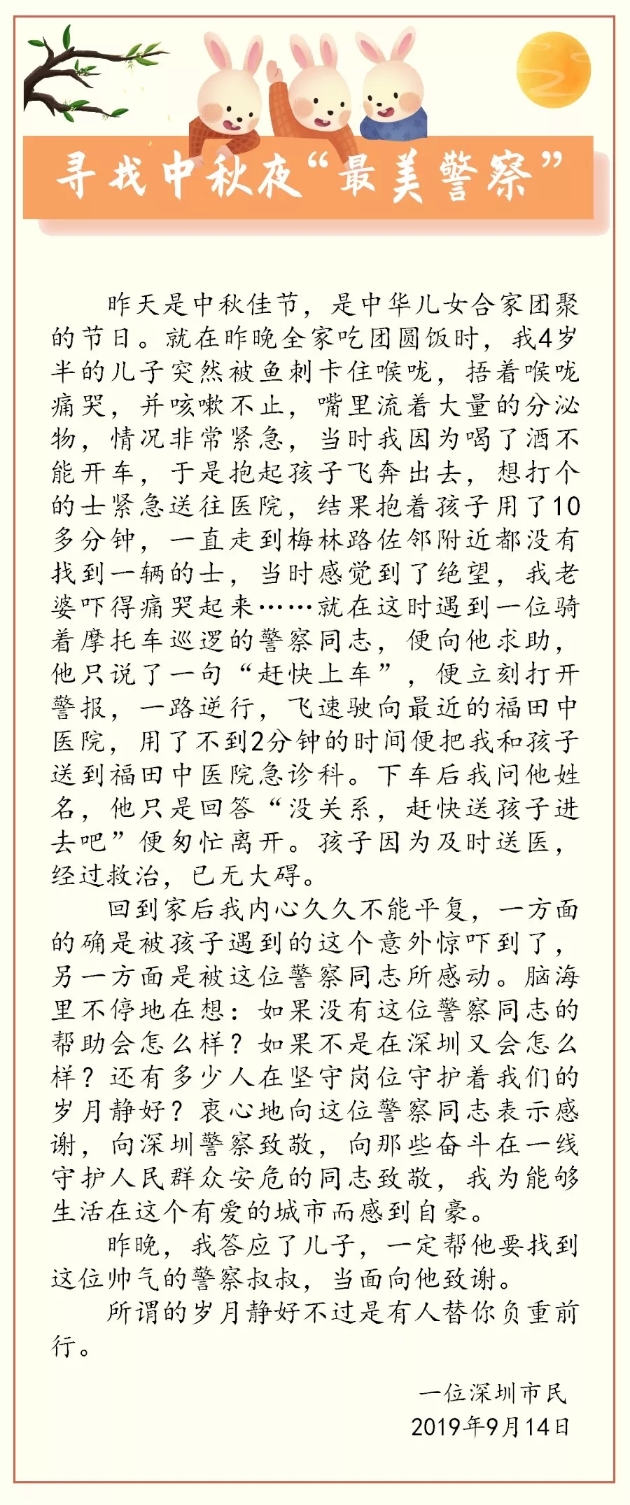 寻找中秋夜“最美警察”
昨天是中秋佳节，是中华儿女合家团聚
的节日。就在昨晚全家吃团圆饭时，我4岁
半的儿子突然被鱼刺卡住喉咙，捂着喉咙
痛哭，并咳嗽不止，嘴里流着大量的分泌
物，情况非常紧急，当时我因为喝了酒不
能开车，于是抱起孩子飞奔出去，想打个
的士紧急送往医院，结果抱着孩子用了10
多分钟，一直走到梅林路佐邻附近都没有
找到一辆的士，当时感觉到了绝望，我老
婆吓得痛哭起来……就在这时遇到一位骑
着摩托车巡逻的警察同志，便向他求助，
他只说了一句“赶快上车”，便立刻打开
警报，一路逆行，飞速驶向最近的福田中
医院，用了不到2分钟的时间便把我和孩子
送到福田中医院急诊科。下车后我问他姓
名，他只是回答“没关系，赶快送孩子进
去吧”便匆忙离开。孩子因为及时送医，
经过救治，已无大碍。
回到家后我内心久久不能平复，一方面
的确是被孩子遇到的这个意外惊吓到了，
另一方面是被这位警察同志所感动。脑海
里不停地在想：如果没有这位警察同志的
帮助会怎么样？如果不是在深圳又会怎么
样？还有多少人在坚守岗位守护着我们的
岁月静好？衷心地向这位警察同志表示感
谢，向深圳警察致敬，向那些奋斗在一线
守护人民群众安危的同志致敬，我为能够
生活在这个有爱的城市而感到自豪。
昨晚，我答应了儿子，一定帮他要找到
这位帅气的警察叔叔，当面向他致谢。
所谓的岁月静好不过是有人替你负重前
行。
一位深圳市民
2019年9月14日